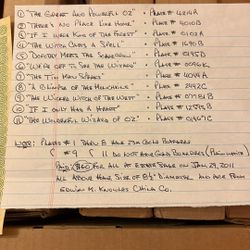 ① "The Great And Powerful OZ" • Plate # 4214A
② "There's No Place Like Home" • Plate # 4010B
③ "If I Were King Of The Forest" • Plate # 0102A
④ "The Witch Casts A Spell" • Plate # 1690B
⑤ "Dorothy Meets The Scarecrow" • Plate #
⑥ "We're Off To See The Wizard" • Plate # 0096K
⑦ "The Tin Man Speaks" • Plate # 4044A
⑧ "A Glimpse Of The Munchkins" • Plate # 2492C
⑨ "The Wicked Witch Of The West" • Plate #
⑩ "If I Only Had A Heart" • Plate #
⑪ "The Wonderful Wizard Of OZ" • Plate #
Note: Plates # 1 Thru 8 Have 23K Gold Borders
" # 9 11 Do Not Have Gold Borders (Plain White)
Paid: $60 For All At Estate Sale On Jan. 29, 2011
All Above Have Size Of 8½" Diameter And Are From
Edwin M. Knowles China Co.